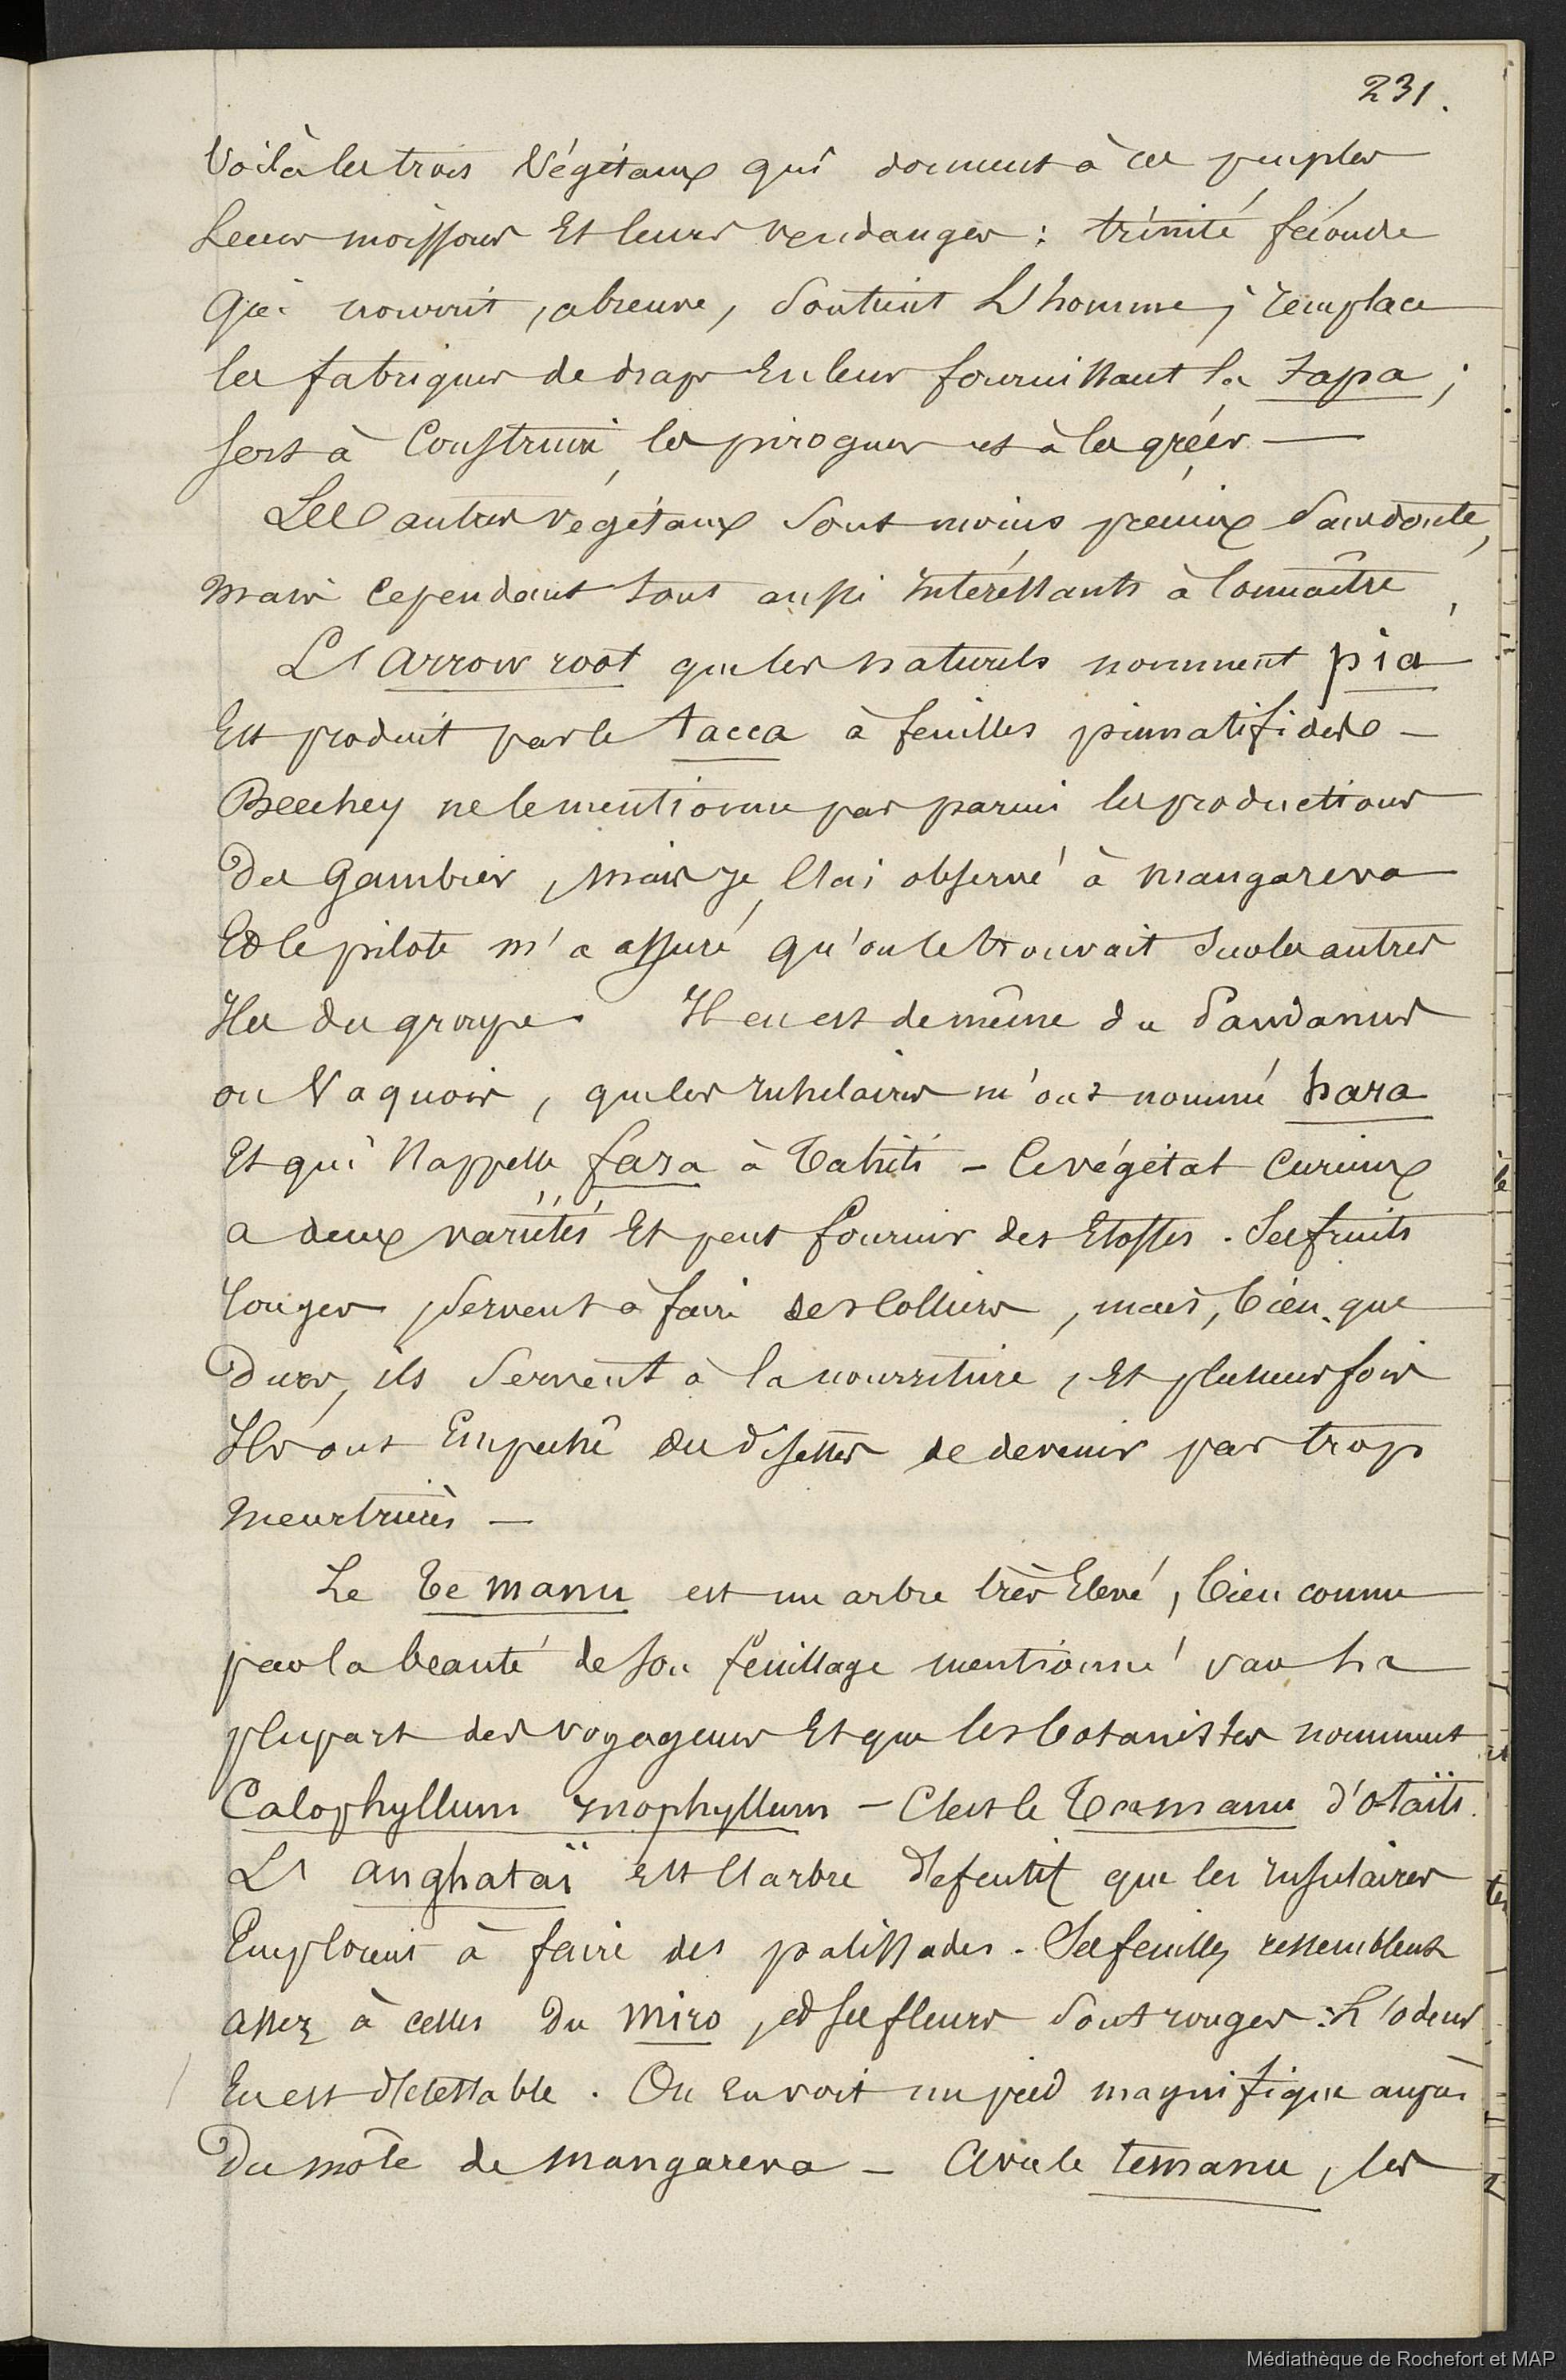 231.
Voilà les trois Végétaux qui donnent à ces peuples
Leurs moissons Et leurs vendanges : trinité féconde
Qui nourrit, abreuve, Soutient L'homme ; remplace
les fabriques de drap En leur fournissant la tapa ;
sert à Construire les pirogues et à les gréer —
Les autres végétaux Sont moins précieux Sans doute,
mais Cependant tous aussi intéressants à Connaître,
L'arrow root que les naturels nomment pia
Est produit par le tacca à feuilles pinnatifides —
Beechey ne le mentionne pas parmi les productions
Des Gambier, mais je l'ai observé à Mangareva
Et le pilote m'a assuré qu'on le trouvait Sur les autres
Iles du groupe. Il en est de même du Pandanus
ou Vaquois, que les Insulaires m'ont nommé hara
Et qui S'appelle fara à Tahiti — Ce végétal Curieux
a deux variétés Et peut fournir des Etoffes. Ses fruits
rouges Servent à faire des Colliers, mais, bien que
Durs, ils Servent à la nourriture, Et plusieurs fois
Ils ont Empêché des disettes de devenir par trop
Meurtrières —
Le Te manu est un arbre très Elevé, bien connu
par la beauté de son feuillage mentionné par la
plupart des voyageurs Et que les botanistes nomment
Calophyllum inophyllum — C'est le Tamanu d'Otaïti.
L'anghataï est l'arbre défensif que les Insulaires
Emploient à faire des palissades. Ses feuilles ressemblent
assez à celles Du miro, et ses fleurs sont rouges : L'odeur
En est détestable. On en voit un pied magnifique auprès
Du môle de Mangareva — Avec le temanu, les
Médiathèque de Rochefort et MAP